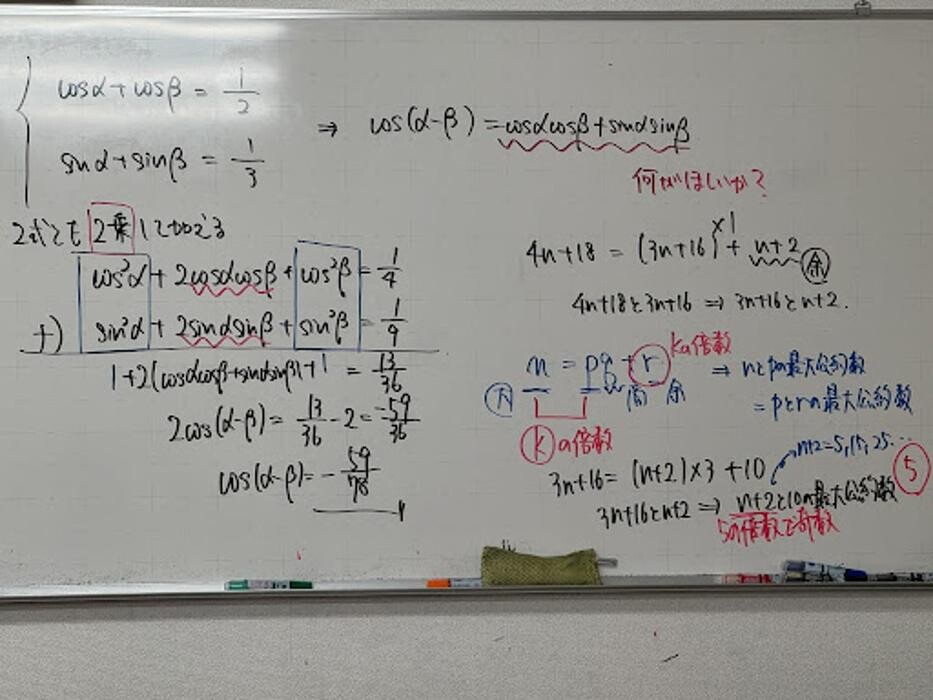 cosα+cosβ = 1/2
sinα+sinβ = 1/3
⇒ cos(α-β) = cosαcosβ+sinαsinβ
何がほしいか?
2式とも2乗して
cos²α + 2cosαcosβ + cos²β = 1/4
+) sin²α + 2sinαsinβ + sin²β = 1/9
1+2(cosαcosβ+sinαsinβ)+1 = 13/36
2cos(α-β) = 13/36 - 2 = -59/36
cos(α-β) = - 59/78
4n+18 = (3n+16)×1 + n+2 余
4n+18と3n+16 ⇒ 3n+16とn+2.
kの倍数
n = pq + r ⇒ nとpの最大公約数
商 余
= pとrの最大公約数
kの倍数
n+2=5,15,25…
3n+16 = (n+2)×3 +10
5
3n+16とn+2 ⇒ n+2と10の最大公約数
5の倍数で奇数